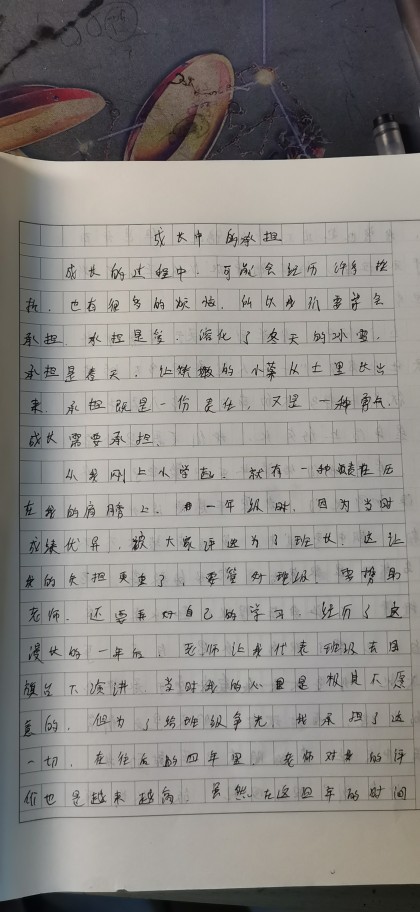 成长中的承担
成长的过程中，可能会经历许多挫
折，也有很多的烦恼，所以我们要学会
承担。承担是冬，溶化了冬天的冰雪，
承担是春天，让娇嫩的小菜从土里长出
来。承担既是一份责任，又是一种勇气，
成长需要承担。
从我刚上小学起，就有一种责任压
在我的肩膀上。一年级时，因为当时
成绩优异，被大家评选为了班长，这让
我的负担更重了，要管好班级，要帮助
老师，还要弄好自己的学习，经历了这
漫长的一年后，老师让我代表班级去国
旗台下演讲，当时我的心里是极其不愿
意的，但为了给班级争光，我承担了这
一切，在往后的四年里，老师对我的评
价也是越来越高，虽然在这四年的时间